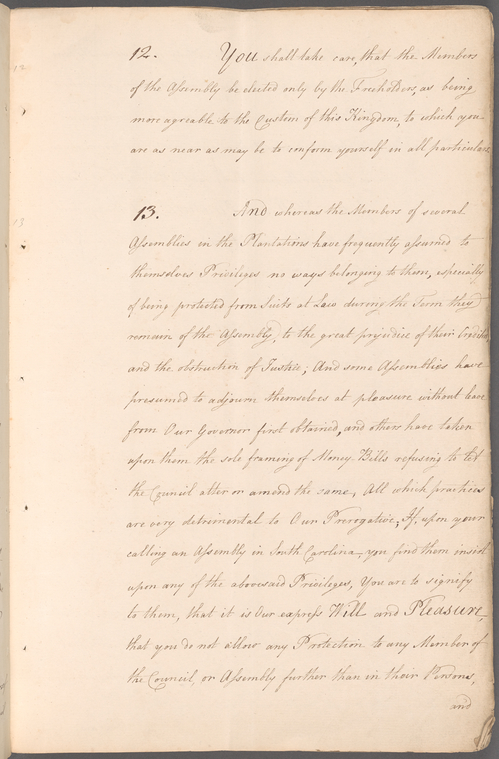 12. You shall take care, that the Members
of the Assembly be elected only by the Freeholders, as being
more agreable to the Custom of this Kingdom, to which you
are as near as may be to conform yourself in all particulars
13. And whereas the Members of several
Assemblies in the Plantations have frequently assumed to
themselves Privileges no ways belonging to them, especially
of being protected from Suits at Law during the Term they
remain of the Assembly, to the great prejudice of their Creditors
and the obstruction of Justice; And some Assemblies have
presumed to adjourn themselves at pleasure without leave
from Our Governor first obtained, and others have taken
upon them the sole framing of Money Bills refusing to let
the Council alter or amend the same, All which practices
are very detrimental to Our Prerogative; If, upon your
calling an Assembly in South Carolina, you find them insist
upon any of the abovesaid Privileges, You are to signify
to them, that it is Our express Will and Pleasure,
that you do not allow any Protection to any Member of
the Council, or Assembly further than in their Persons,
and